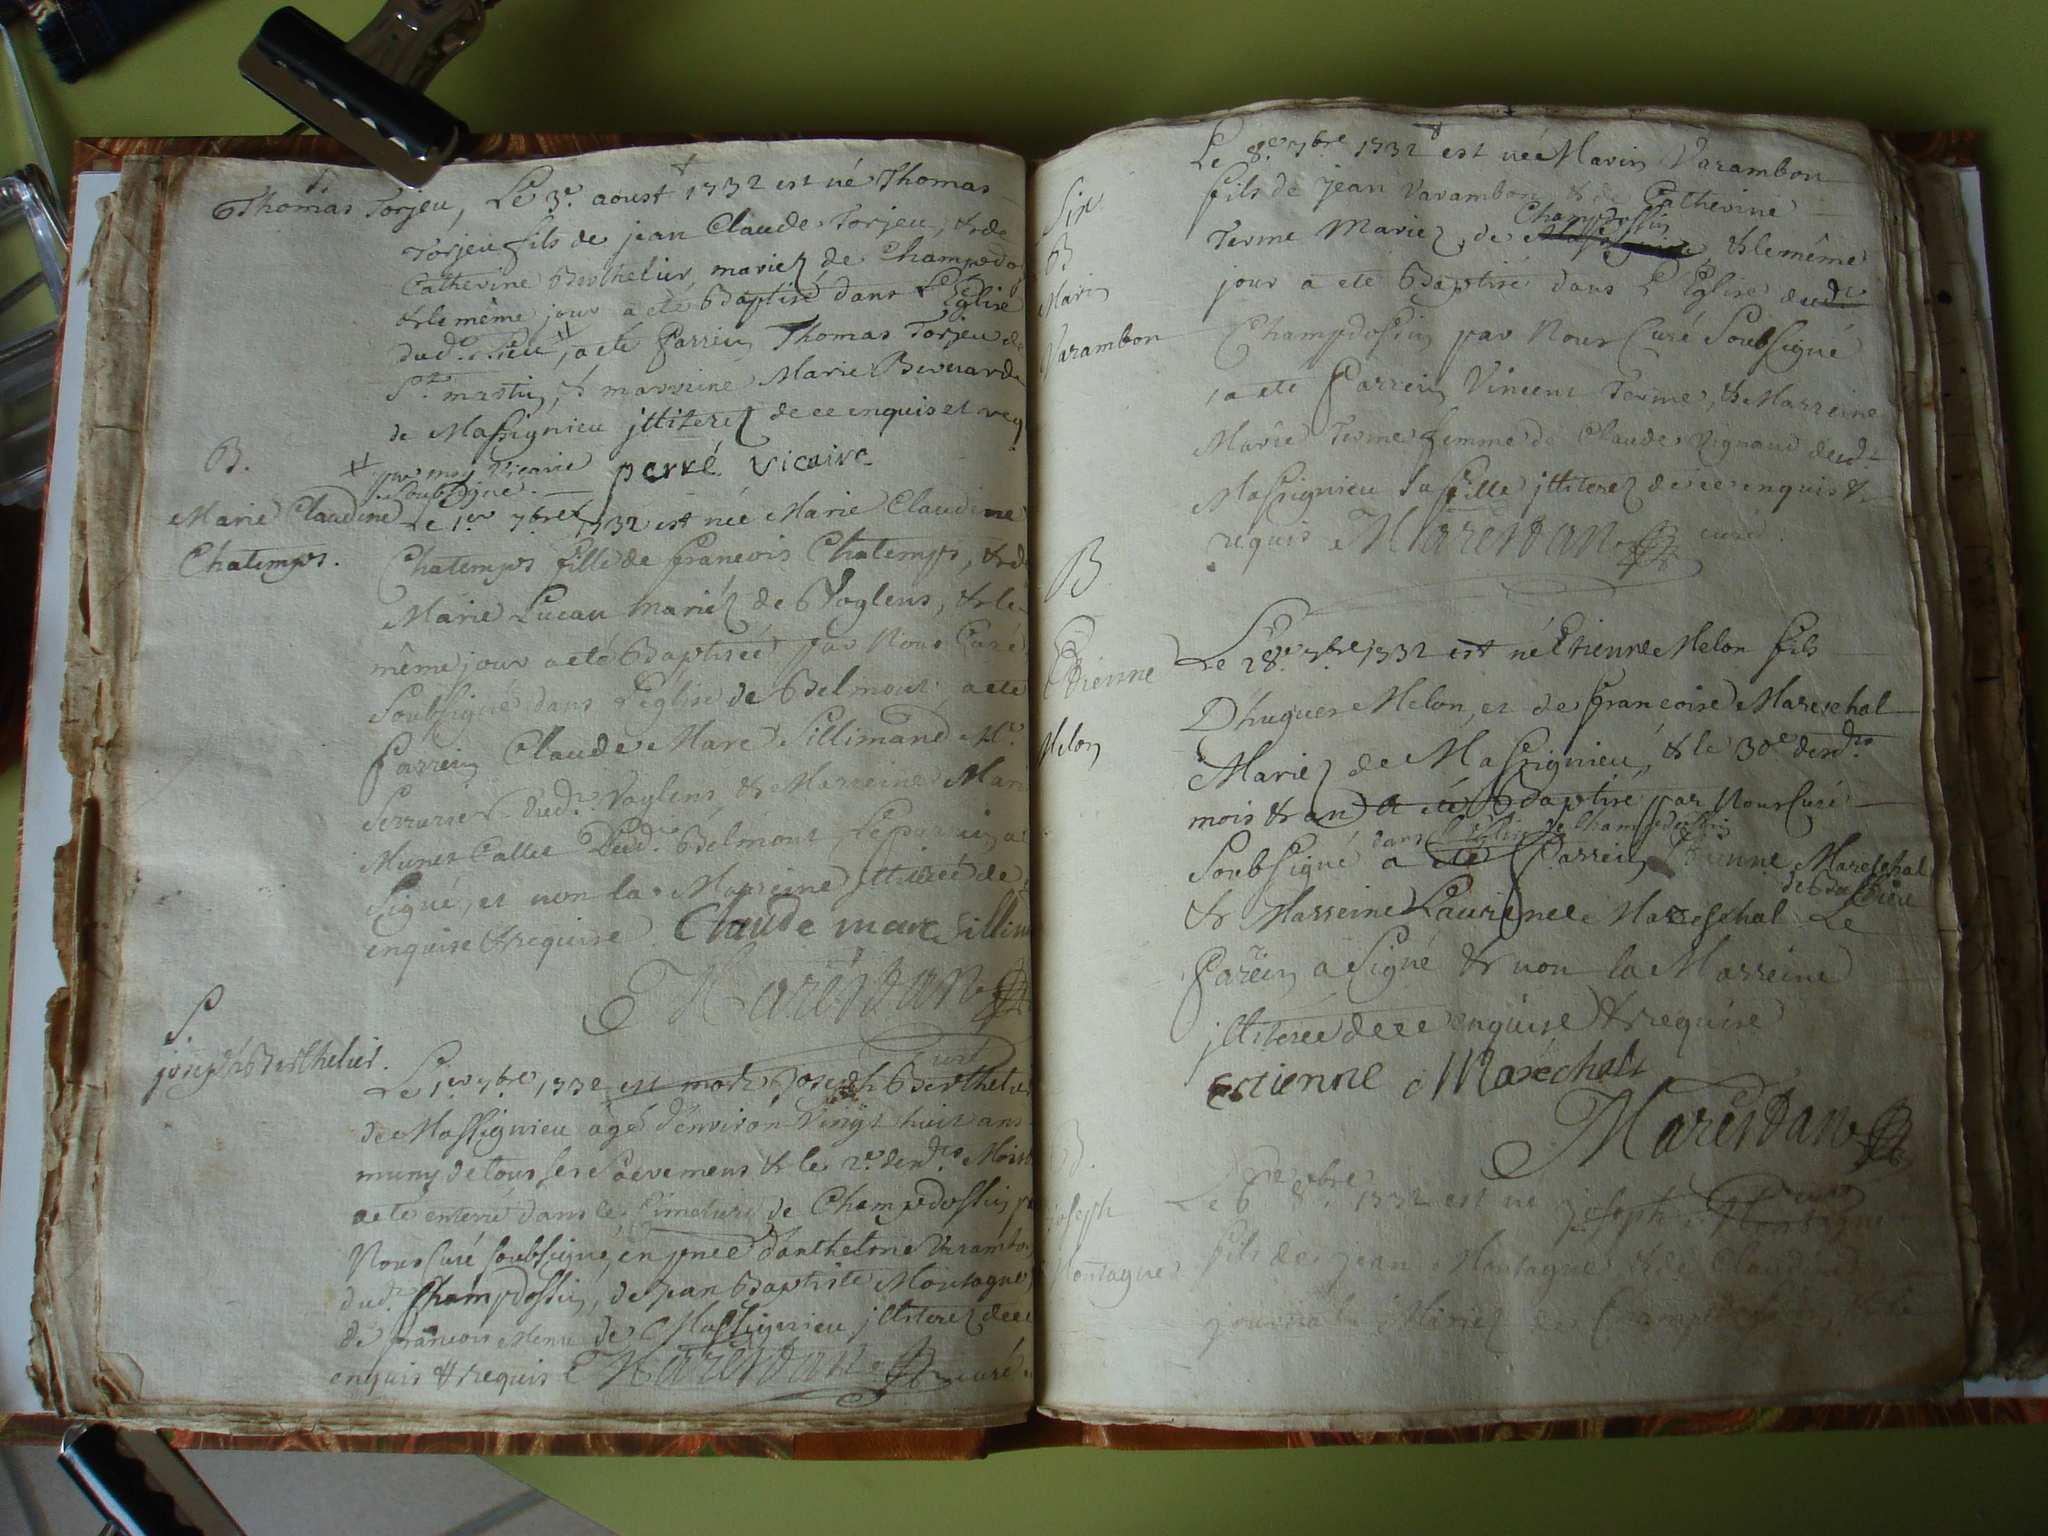 Thomas Torjeu, Le 3e. aoust 1732 est né Thomas
Torjeu fils de jean Claude Torjeu, & de
Catherine Berthelier mariez de Champdo
& le même jour a eté Baptisé dans L'Eglise
dud. Lieu, a eté Parrein Thomas Torjeu de
St. martin, & marreine Marie Bernarde
de Massignieu illiterez de ce enquis et req
par moy Vicaire
soubsigné. perré vicaire
B.
Marie Claudine
Chatemps.
Le 1er 7bre 1732 est née Marie Claudine
Chatemps fille de francois Chatemps, & de
Marie Lucau mariéz de Voglens, & le
même jour a eté Baptisée par Nous Curé
Soubsigné dans L'eglise de Belmont, a eté
Parrein Claude Marc Sillimand Mr.
Serrurier dud. Voglens, & Marreine Mari
Dud. Belmont, Le parrein a
Signé, et non la Marreine illiterée de
enquise & requise. Claude marc Sillim
Maréstan
curé
S.
joseph Berthelier.
Le 1er 7bre 1732 est mort Joseph Berthelier
de Massignieu agé d'environ Vingt huit ans
muny de tous les Sacremens & le 2e desd. Mois
a eté enterré dans le Cimetiere de Champdossin p
Nous Curé soubsigné, en pnce d'anthelme Varambo
dud. Champdossin, de jean Baptiste Montagne,
de francois de Massignieu illiterez de ce
enquis & requis Maréstan curé
B
Marin
Varambon
Le 8e 7bre 1732 est né Marin Varambon
fils de jean Varambon & de Catherine
Terme Mariez de Champdossin, & le même
jour a eté Baptisé dans L'Eglise dud.
Champdossin par Nous Curé Soubsigné
a eté Parrein Vincent Terme, & Marreine
Marie Terme femme de Claude Vignaud dud.
Massignieu Sa fille illiterez de ce enquis &
requis Maréstan curé.
B
Etienne
Melon
Le 28e 7bre 1732 est né Etienne Melon fils
D'hugues Melon, et de francoise Mareschal
Mariez de Massignieu, & le 30e desd.
mois & an a eté Baptisé par Nous Curé
dans L'Eglise de Champdossin
Soubsigné a eté Parrein Etienne Mareschal
& Marreine Laurence Mareschal Le
Parein a Signé & non la Marreine
illiterée de ce enquise & requise
Estienne Maréchal
Maréstan
curé
B.
Joseph
Montagne
Le 6e 8bre 1732 est né joseph Montagne
fils de jean Montagne & de Claudine
Mariez de Champdossin, & le